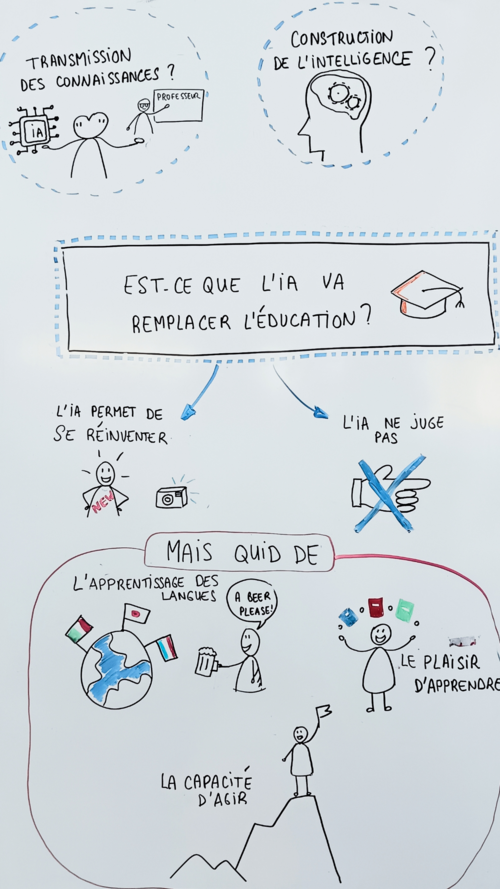 TRANSMISSION
DES CONNAISSANCES ?
iA
PROFESSEUR
CONSTRUCTION
DE L'INTELLIGENCE ?
EST-CE QUE L'iA VA
REMPLACER L'ÉDUCATION ?
L'iA PERMET DE
SE RÉINVENTER
NEW
L'iA NE JUGE
PAS
MAIS QUID DE
L'APPRENTISSAGE DES
LANGUES
A BEER
PLEASE!
LE PLAISIR
D'APPRENDRE
LA CAPACITÉ
D'AGIR